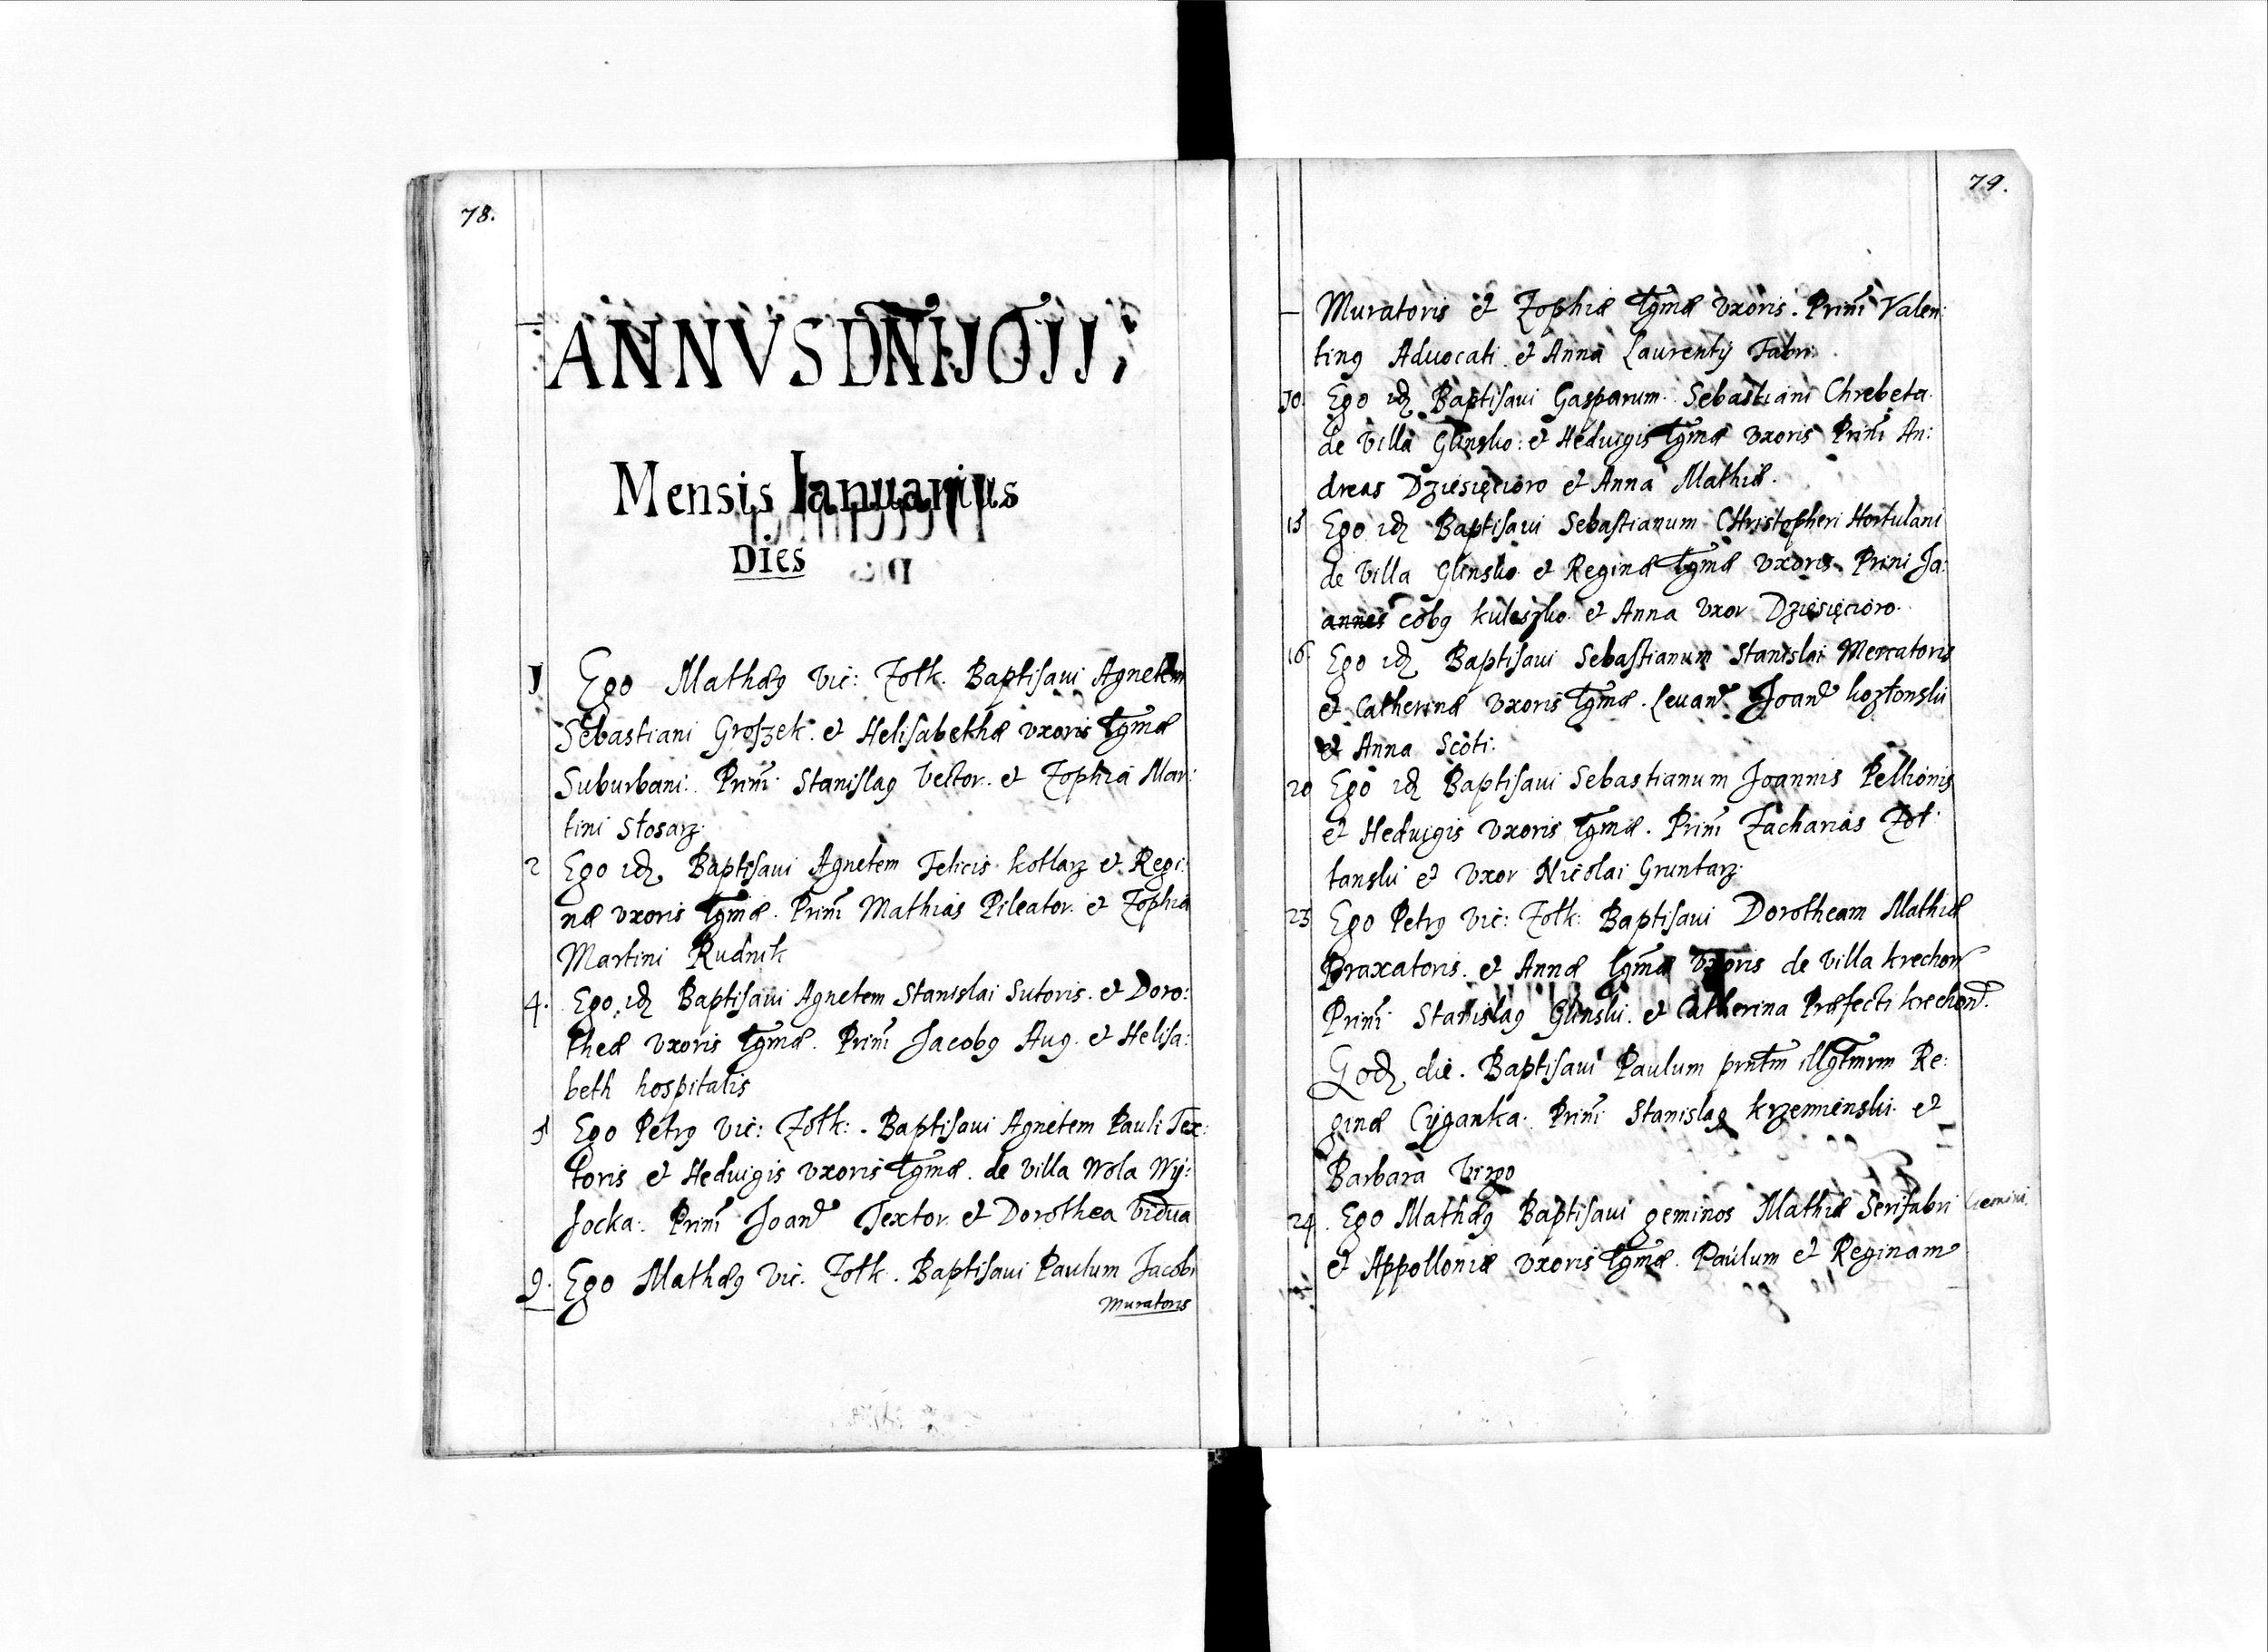 78.
ANNVS DNI JOJJ;
Mensis Ianuarius
Dies
1 Ego Mathæ9 Vic: Zolk. Baptisaui Agnetem
Sebastiani Groszek. et Helisabethæ vxoris Lgmæ
Suburbani: Prini Stanislaq Vector. et Zophia Mar:
tini Stosarz.
2 Ego idz Baptisaui Agnetem Felicis kotlarz et Regi:
næ vxoris Lgmæ. Prini Mathias Pileator. et Zophia
Martini Rudnik
4. Ego idz Baptisaui Agnetem Stanislai Sutoris. et Doro:
theæ vxoris Lgmæ. Prini Jacob9 Aug. et Helisa:
beth hospitalis
5 Ego Petr9 Vic: Zolk: . Baptisaui Agnetem Pauli Tex:
toris et Heduigis vxoris Lgmæ. de Villa Wola Wÿ:
socka. Prini Joan Textor. et Dorothea Vidua
9. Ego Mathæ9 Vic. Zolk. Baptisaui Paulum Jacobi
Muratoris
79.
Muratoris et Zophiæ Lgmæ vxoris. Prini Valen:
tin9 Aduocati et Anna Laurentÿ Fabri.
10. Ego idz Baptisaui Gasparum Sebastiani Chrebeta.
de Villa Glinsko: et Heduigis Lgmæ vxoris Prini An:
dreas Dziesięcioro et Anna Mathiæ.
15 Ego idz Baptisaui Sebastianum CHristopheri Hortulani
de Villa Glinsko et Reginæ Lgmæ vxoris. Prini Ja:
annes cob9 kuleszko. et Anna Vxor Dziesięcioro.
16. Ego idz Baptisaui Sebastianum Stanislai Mercatoris
et Catherinæ vxoris Lgmæ. Leuan Joan kozlonski
et Anna Scoti.
20 Ego idz Baptisaui Sebastianum Joannis Pellionis
et Heduigis vxoris Lgmæ. Prini Zacharias Zol:
tanski et Vxor Nicolai Gruntarz.
23 Ego Petr9 Vic: Zolk: Baptisaui Dorotheam Mathiæ
Praxatoris. et Annæ Lgmæ vxoris de Villa krechow
Prini Stanislaq Glinski. et Catherina Præfecti krechow.
Eodz die. Baptisaui Paulum prntm illgtmrm Re:
ginæ Cÿganka. Prini Stanislaq krzemienski. et
Barbara Virgo
24. Ego Mathæ9 Baptisaui geminos Mathiæ Serifabri Gemini.
et Appolloniæ vxoris Lgmæ. Paulum et Reginam